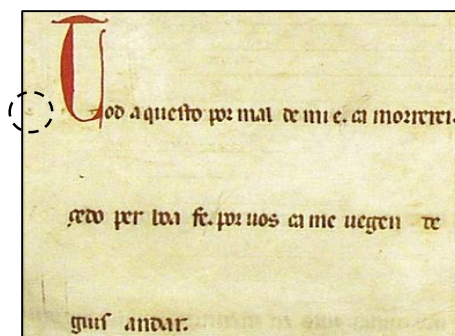 Tod aquesto por mal de mi e. ca morrerei.
çedo per boa fe. por uos ca me uegen de
guis andar.